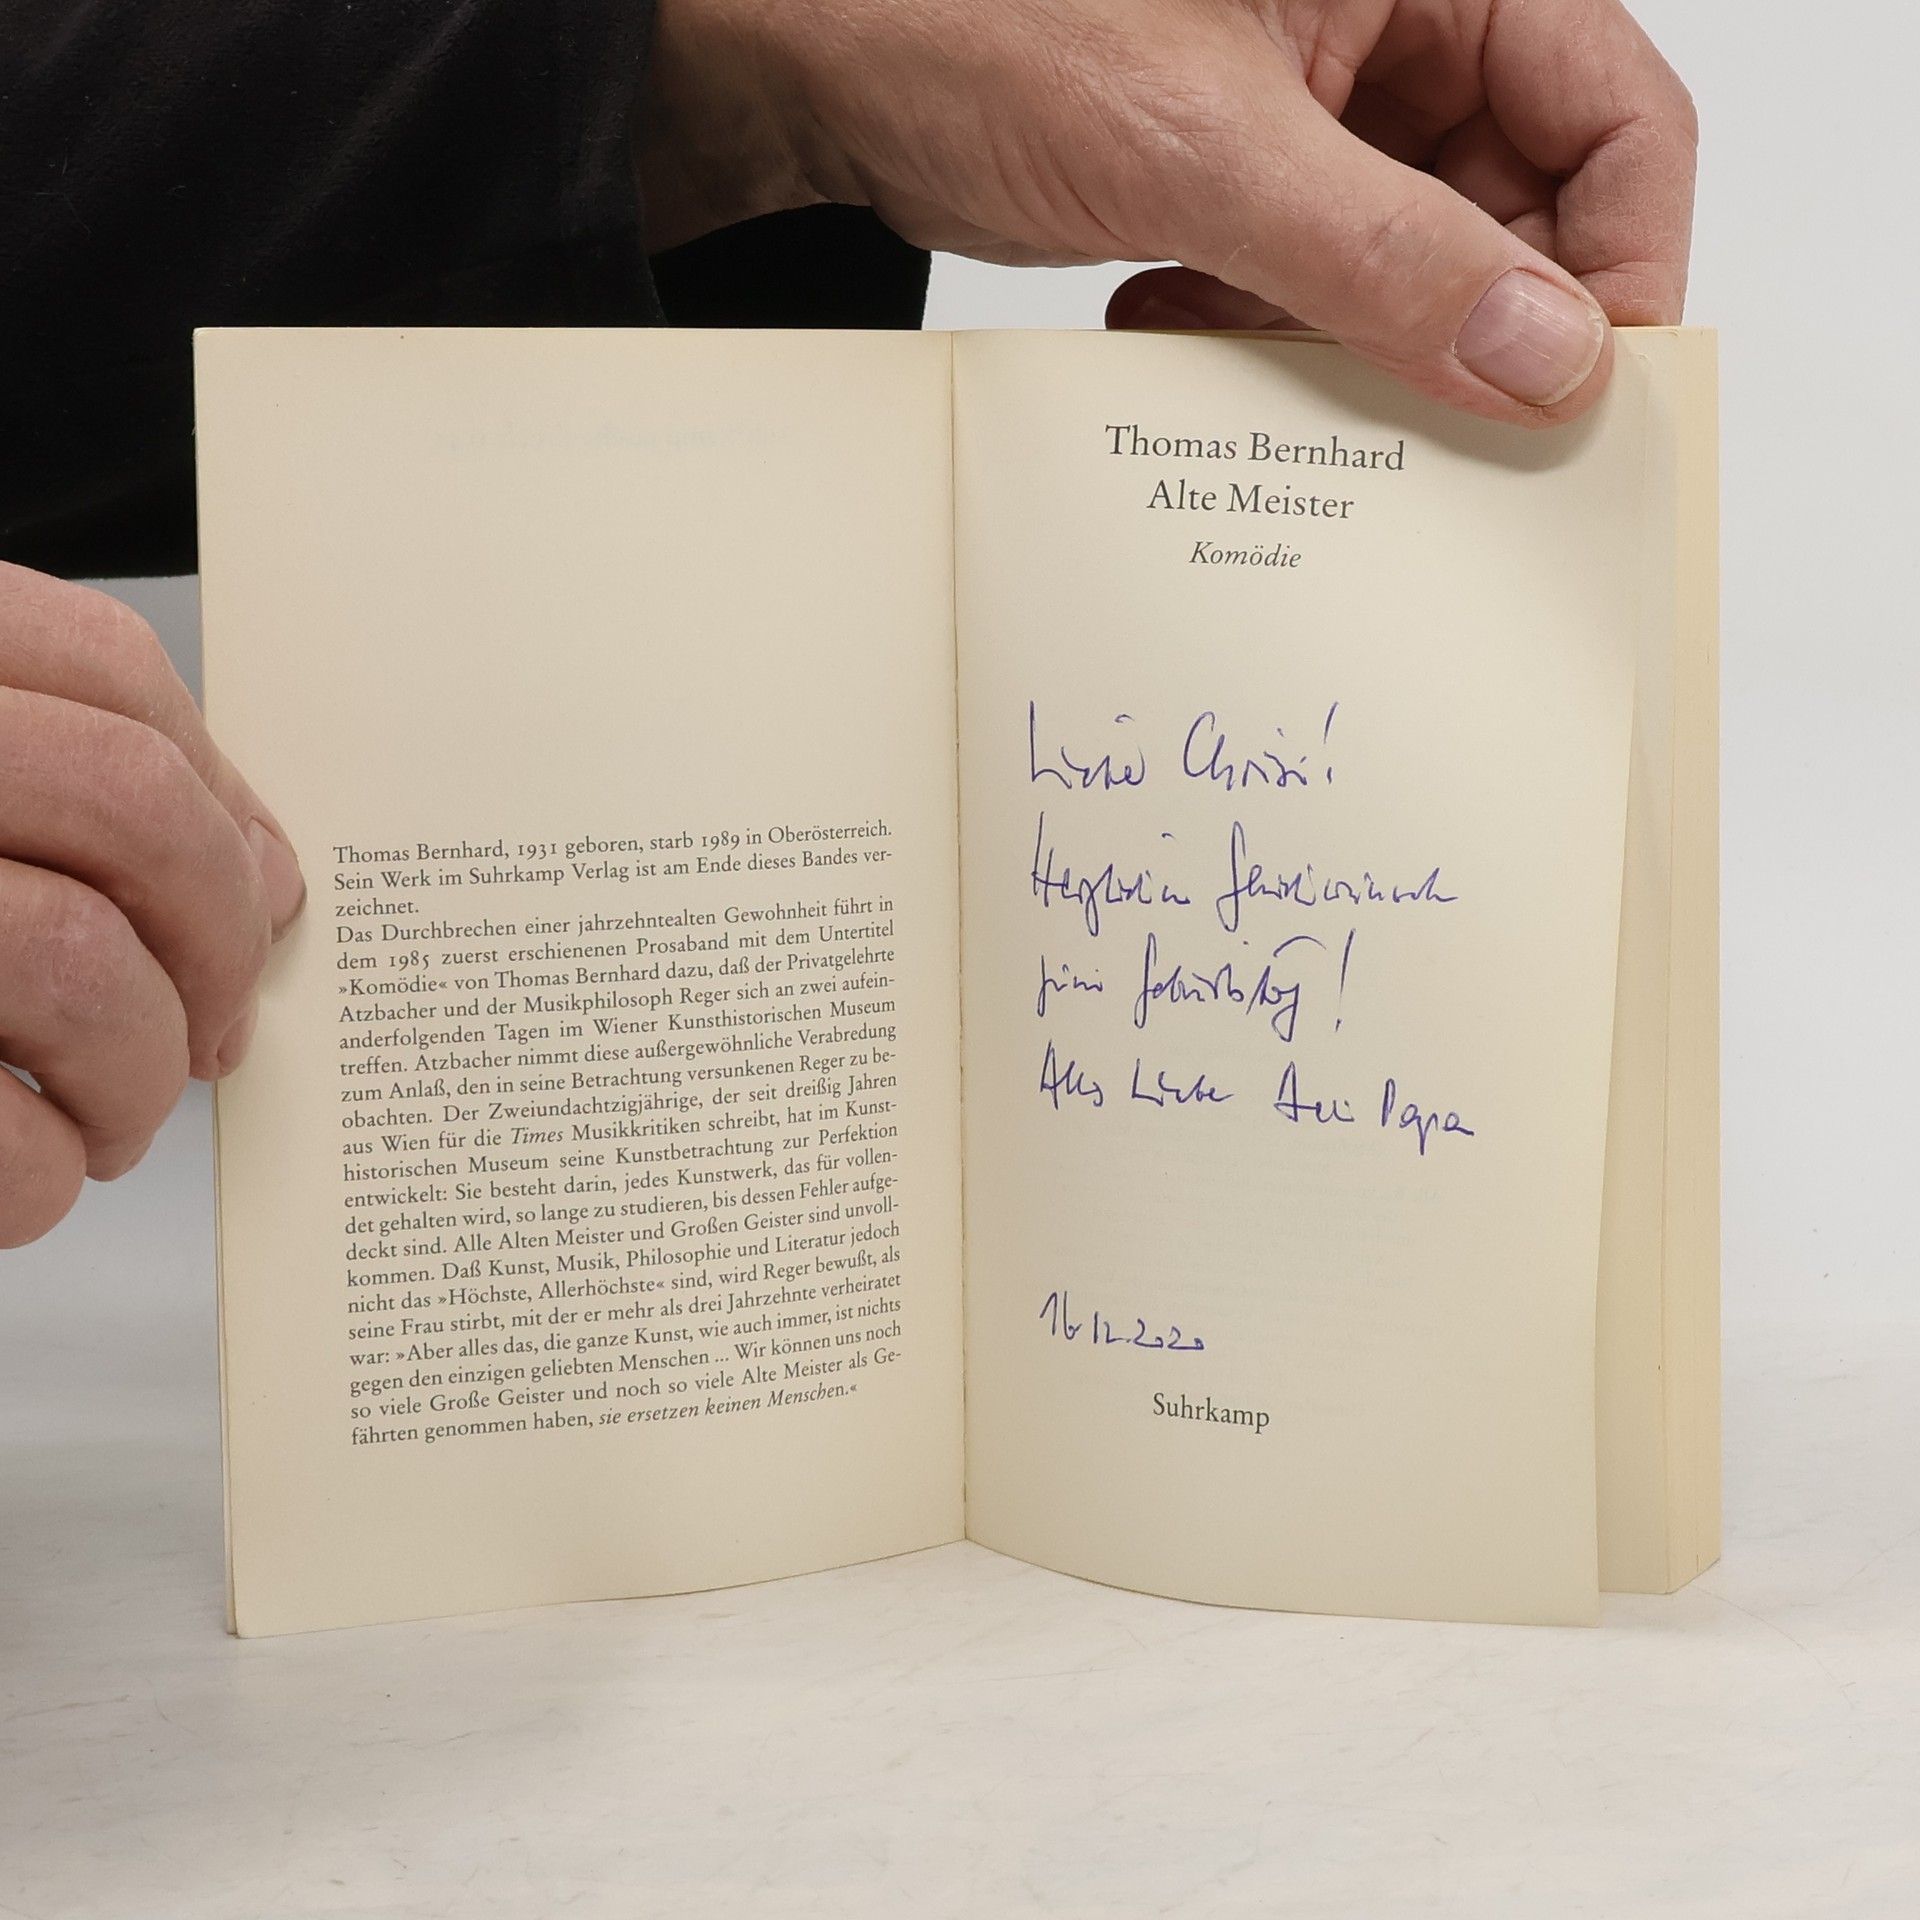 Thomas Bernhard, 1931 geboren, starb 1989 in Oberösterreich.
Sein Werk im Suhrkamp Verlag ist am Ende dieses Bandes ver-
zeichnet.
Das Durchbrechen einer jahrzehntealten Gewohnheit führt in
dem 1985 zuerst erschienenen Prosaband mit dem Untertitel
»Komödie« von Thomas Bernhard dazu, daß der Privatgelehrte
Atzbacher und der Musikphilosoph Reger sich an zwei aufein-
anderfolgenden Tagen im Wiener Kunsthistorischen Museum
treffen. Atzbacher nimmt diese außergewöhnliche Verabredung
zum Anlaß, den in seine Betrachtung versunkenen Reger zu be-
obachten. Der Zweiundachtzigjährige, der seit dreißig Jahren
aus Wien für die Times Musikkritiken schreibt, hat im Kunst-
historischen Museum seine Kunstbetrachtung zur Perfektion
entwickelt: Sie besteht darin, jedes Kunstwerk, das für vollen-
det gehalten wird, so lange zu studieren, bis dessen Fehler aufge-
deckt sind. Alle Alten Meister und Großen Geister sind unvoll-
kommen. Daß Kunst, Musik, Philosophie und Literatur jedoch
nicht das »Höchste, Allerhöchste« sind, wird Reger bewußt, als
seine Frau stirbt, mit der er mehr als drei Jahrzehnte verheiratet
war: »Aber alles das, die ganze Kunst, wie auch immer, ist nichts
gegen den einzigen geliebten Menschen ... Wir können uns noch
so viele Große Geister und noch so viele Alte Meister als Ge-
fährten genommen haben, sie ersetzen keinen Menschen.«
Thomas Bernhard
Alte Meister
Komödie
Christi!
Herzlichen Glückwunsch
zum Geburtstag!
Alles Liebe Dein Papa
16.12.2020
Suhrkamp